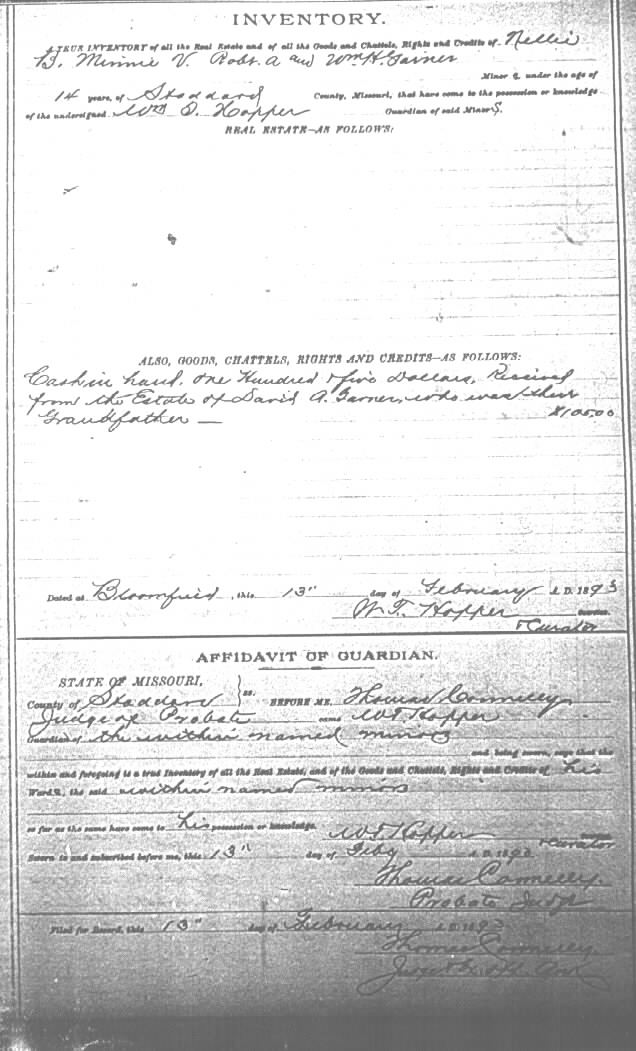 INVENTORY.
A TRUE INVENTORY of all the Real Estate and of all the Goods and Chattels, Rights and Credits of Nellie
B. Minnie V. Robt. A and Wm H. Garner
Minor S, under the age of
14 years, of Stoddard County, Missouri, that have come to the possession or knowledge
of the undersigned Wm T. Hopper Guardian of said Minor S.
REAL ESTATE—AS FOLLOWS:
ALSO, GOODS, CHATTELS, RIGHTS AND CREDITS—AS FOLLOWS:
Cash in hand. One Hundred & five Dollars, Received
from the Estate of David A. Garner, who was their
Grandfather — $105.00
Dated at Bloomfield, this 13" day of February A. D. 1893
W. T. Hopper
& Curator
AFFIDAVIT OF GUARDIAN.
STATE OF MISSOURI,
County of Stoddard } ss. BEFORE ME, Thomas Connelly
Judge of Probate came W T Hopper
Guardian of the within named minors
and being sworn, says that the
within and foregoing is a true Inventory of all the Real Estate, and of the Goods and Chattels, Rights and Credits of his
Ward S, the said within named minors
so far as the same have come to his possession or knowledge. W T Hopper
& Curator
Sworn to and subscribed before me, this 13" day of Feby A. D. 1893
Thomas Connelly
Probate Judge
Filed for Record, this 13" day of February A. D. 1893
Thomas Connelly
Judge